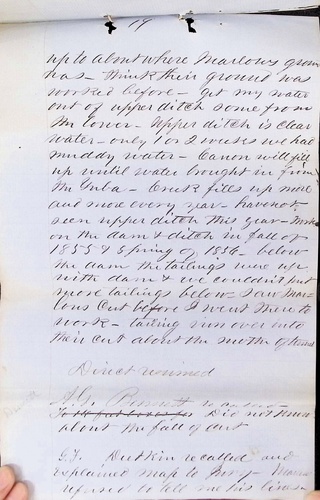 19
up to about where Marlows ground
has - think their ground was
worked before - get my water
out of upper ditch some from
the lower - upper ditch is clear
water - only 1 or 2 weeks we had
muddy water - Canon will fill
up until water brought in from
the Yuba - Creek fills up more
and more every year - have not
seen upper ditch this year - Work
on the dam & ditch in fall of
1855 & Spring of 1856 - below
the dam the tailings were up
with dam & we couldn't put
more tailings below - Saw Mar-
lows Cut before I went there to
work - tailing run over into
their cut about the mouth of
Direct resumed
A.G.
Did not know
about the fall of cut
G.F. Dustkin recalled and
explained map to Jury -
refused to tell me his